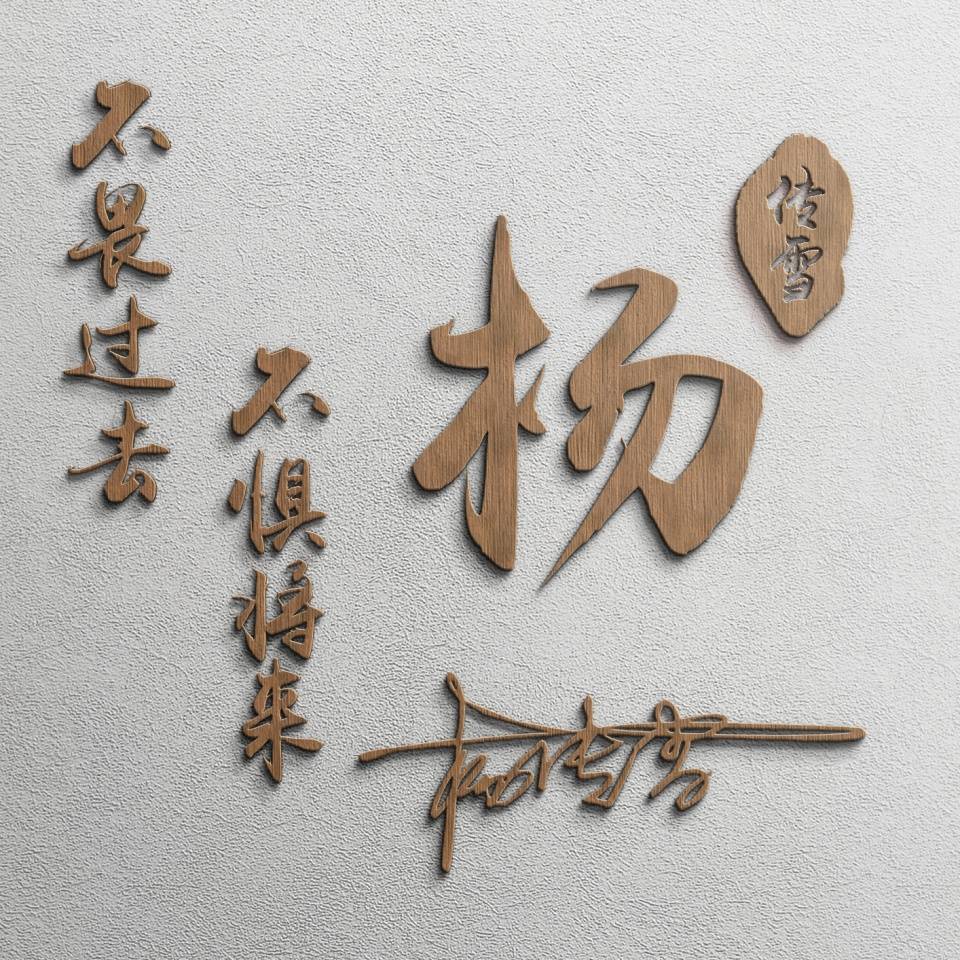 不畏过去
不惧将来
杨
传雪
杨传雪